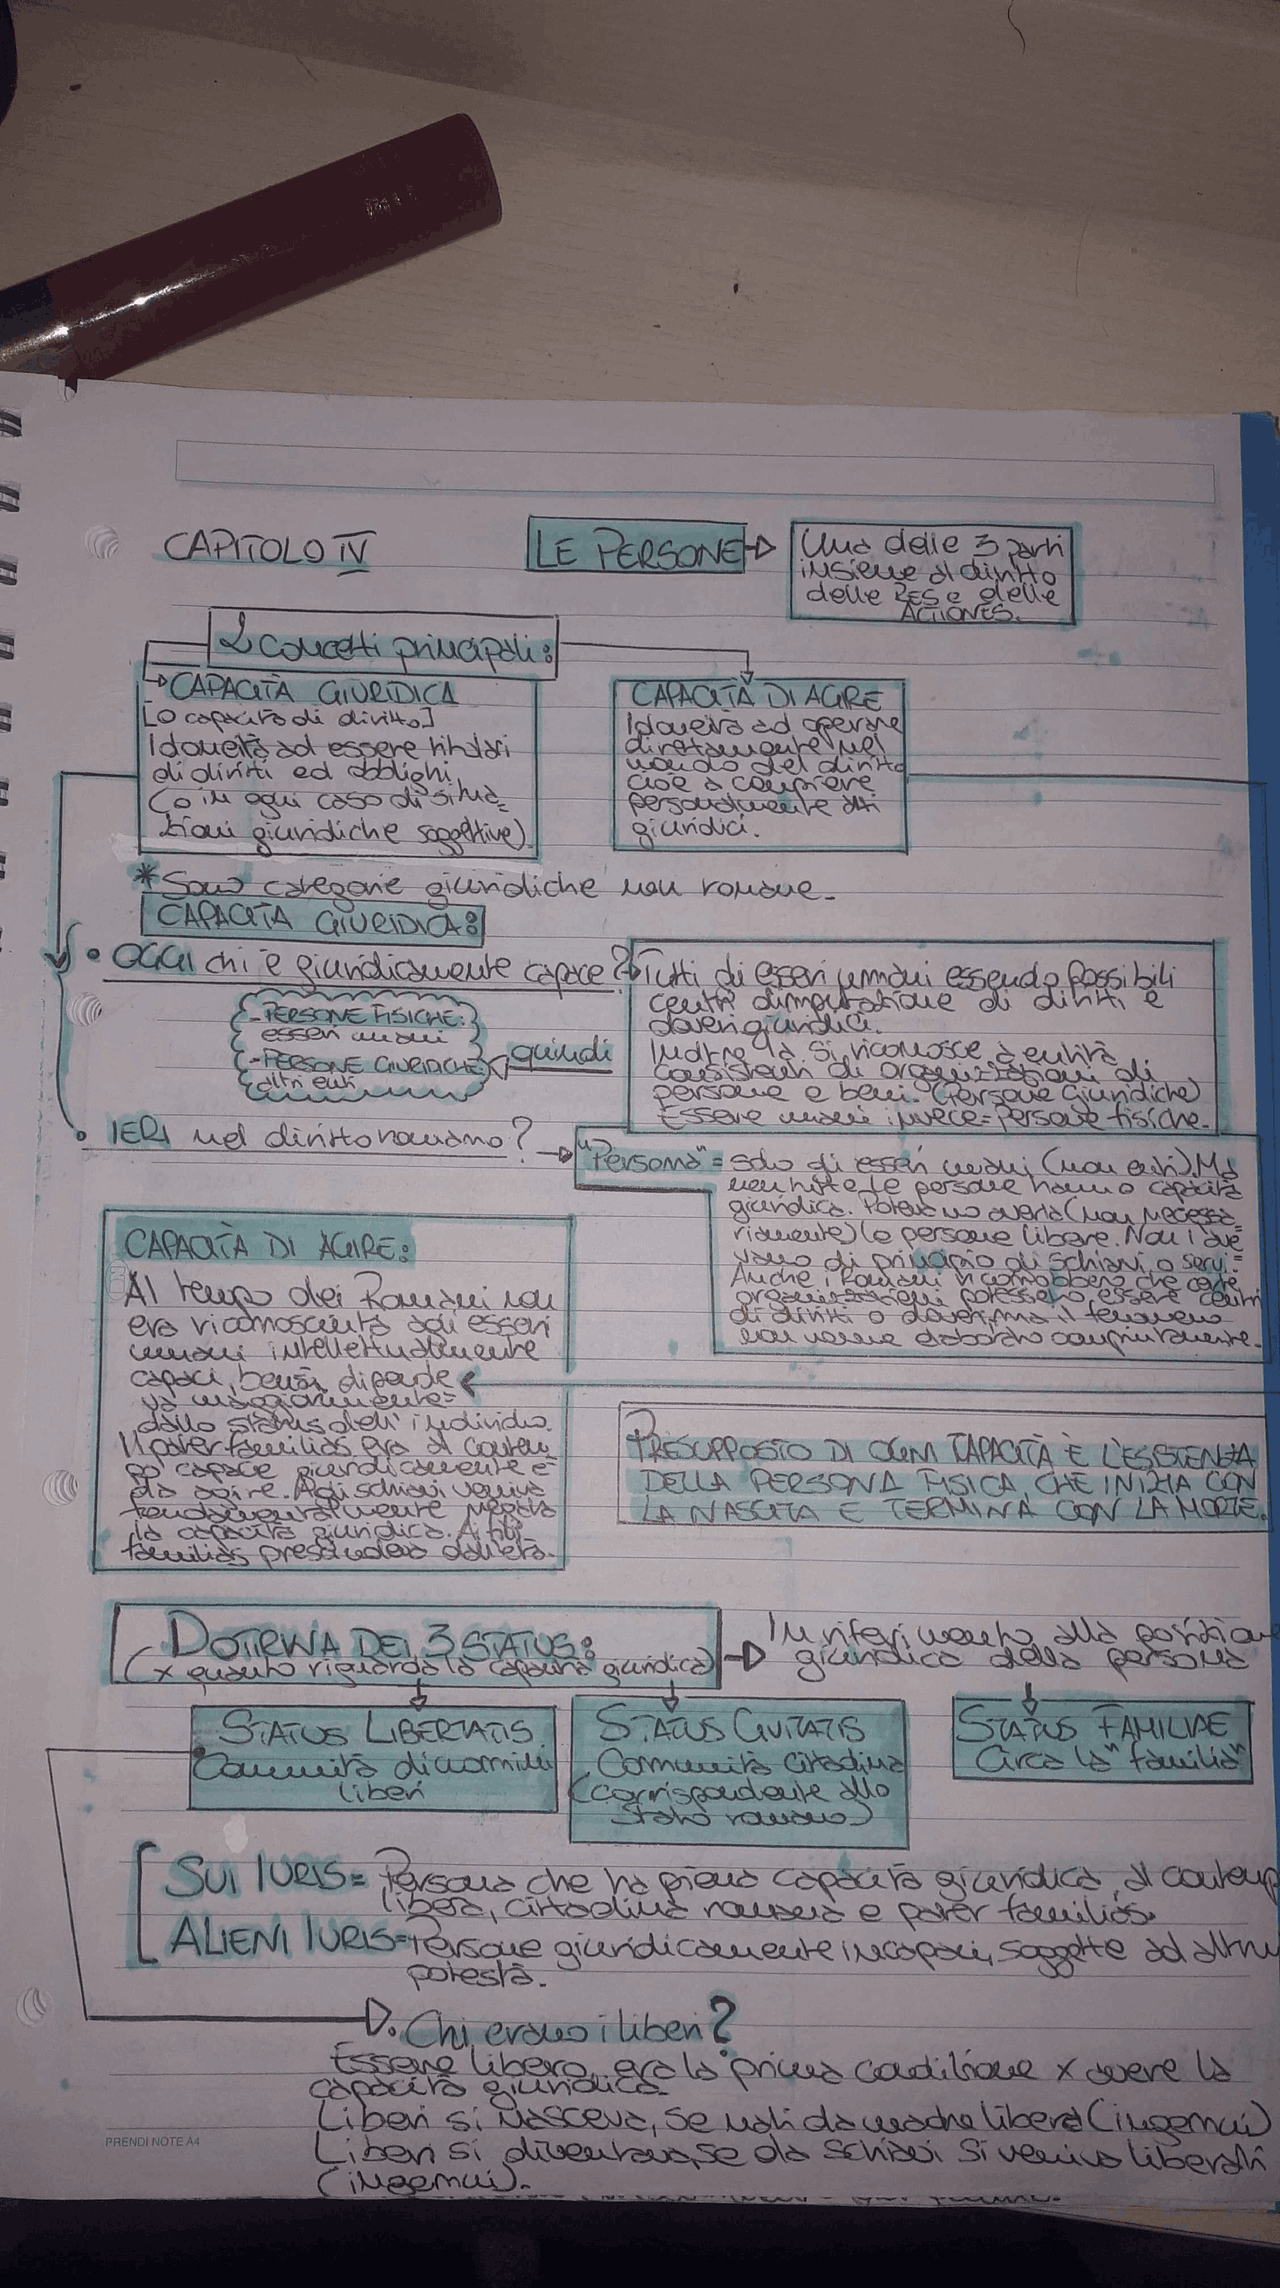 CAPITOLO IV
LE PERSONE
Una delle 3 parti
insieme al diritto
delle RES e delle
ACTIONES.
2 concetti principali:
CAPACITÀ GIURIDICA
[o capacità di diritto]
Idoneità ad essere titolari
di diritti ed obblighi
(o in ogni caso di situa=
zioni giuridiche soggettive)
CAPACITÀ DI AGIRE
Idoneità ad operare
direttamente nel
mondo del diritto
cioè a compiere
personalmente atti
giuridici.
*Sono categorie giuridiche non romane.
CAPACITÀ GIURIDICA:
• OGGI chi è giuridicamente capace?
Tutti gli esseri umani essendo possibili
centri d'imputazione di diritti e
doveri giuridici.
Inoltre la si riconosce a entità
consistenti di organizzazioni di
persone e beni. (Persone Giuridiche)
Essere umani invece=Persone fisiche.
quindi
-PERSONE FISICHE:
esseri umani
-PERSONE GIURIDICHE:
altri enti
• IERI nel diritto romano?
"Persona"= solo gli esseri umani (non enti). Ma
non tutte le persone hanno capacità
giuridica. Potevano averla (non necessa=
riamente) le persone libere. Non l'ave
vano di principio gli schiavi, o servi=
Anche i Romani riconobbero che certe
organizzazioni potessero essere centri
di diritti o doveri, ma il fenomeno
non venne elaborato compiutamente.
CAPACITÀ DI AGIRE:
Al tempo dei Romani non
era riconosciuta agli esseri
umani intellettualmente
capaci, bensì dipende
va maggiormente=
dallo status dell'individuo.
Il pater familias era al contem
po capace giuridicamente e
da agire. Agli schiavi veniva
fondamentalmente negata
la capacità giuridica. Ai filii
familias prescindeva dall'età.
PRESUPPOSTO DI OGNI CAPACITÀ È L'ESISTENZA
DELLA PERSONA FISICA, CHE INIZIA CON
LA NASCITA E TERMINA CON LA MORTE.
DOTTRINA DEI 3 STATUS:
(x quanto riguarda la capacità giuridica)
In riferimento alla posizione
giuridica della persona
STATUS LIBERTATIS
Comunità di uomini
liberi
STATUS CIVITATIS
Comunità cittadina
(corrispondente allo
Stato romano)
STATUS FAMILIAE
Circa la "familia"
SUI IURIS= Persona che ha piena capacità giuridica, al contemp
libera, cittadina romana e pater familias.
ALIENI IURIS=Persone giuridicamente incapaci, soggette ad altrui
potestà.
Chi erano i liberi?
Essere libero, era la prima condizione x avere la
capacità giuridica.
Liberi si nasceva, se nati da madre libera (ingenui)
Liberi si diventava, se da schiavi si veniva liberati
(ingenui).
PRENDI NOTE A4